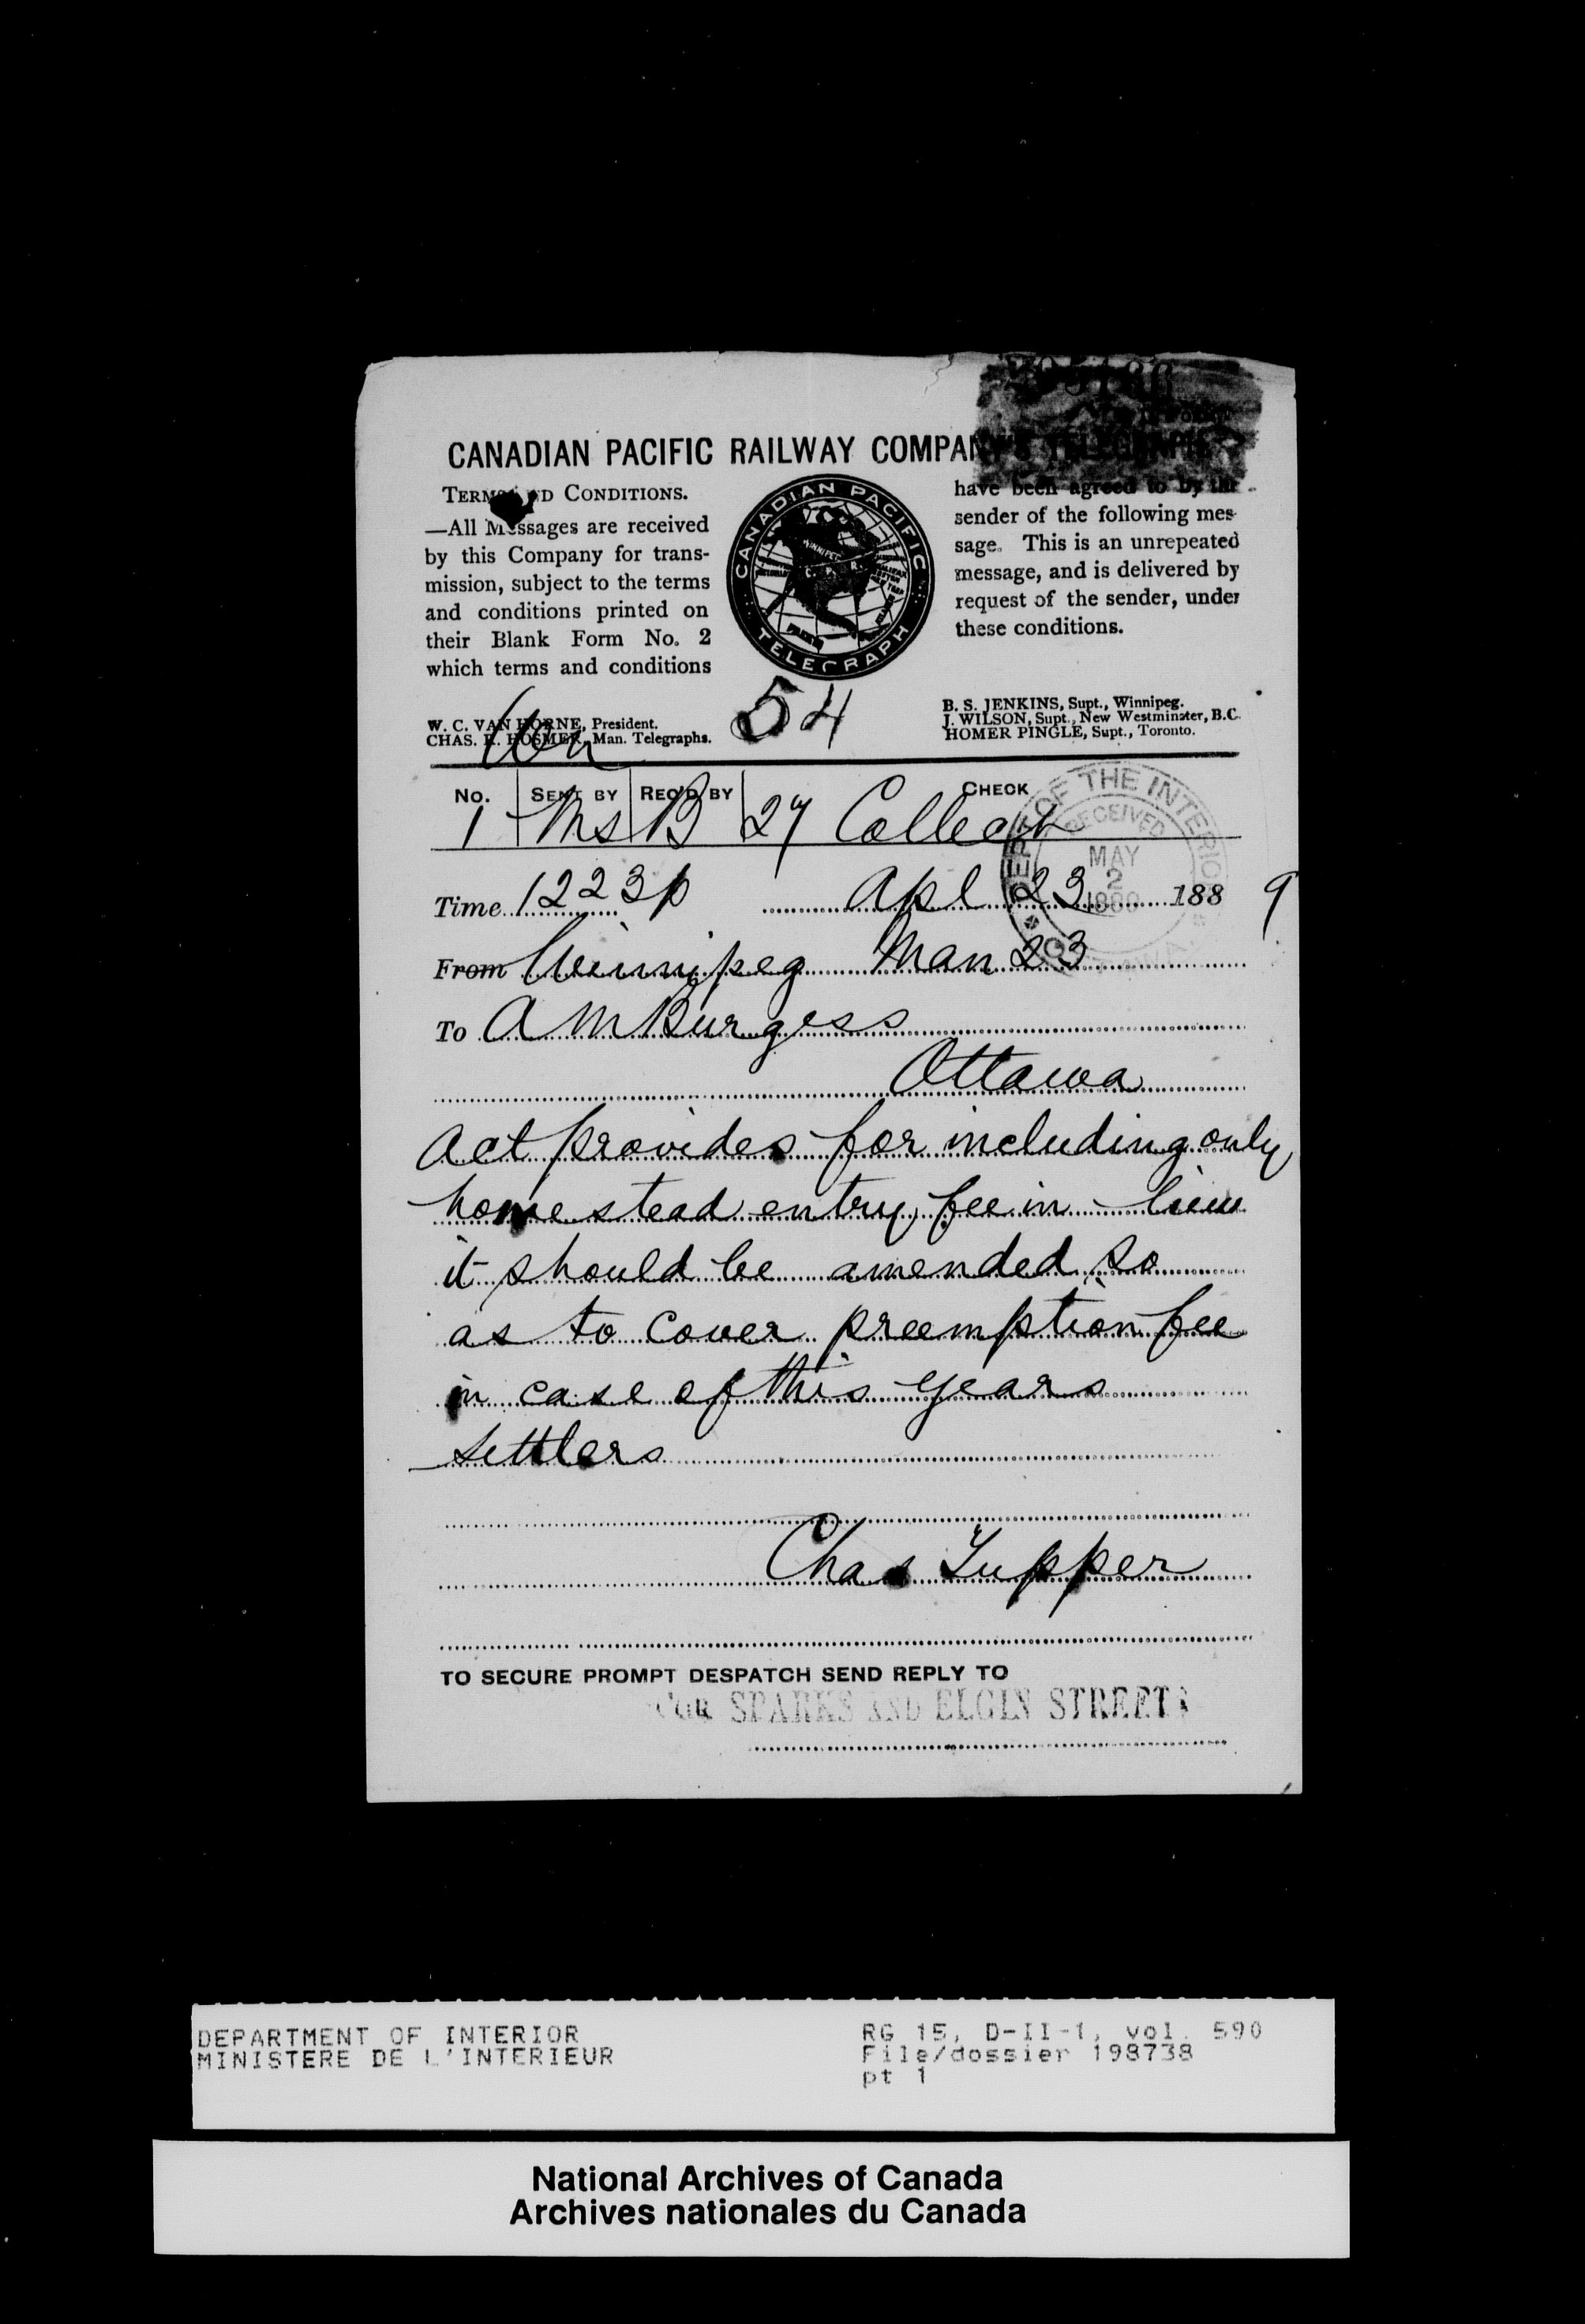 CANADIAN PACIFIC RAILWAY COMPANY'S TELEGRAPH
TERMS AND CONDITIONS.
—All Messages are received
by this Company for trans-
mission, subject to the terms
and conditions printed on
their Blank Form No. 2
which terms and conditions
have been agreed to by the
sender of the following mes-
sage. This is an unrepeated
message, and is delivered by
request of the sender, under
these conditions.
CANADIAN PACIFIC
TELEGRAPH
WINNIPEG
C. P. R.
54
W. C. VAN HORNE, President.
CHAS. R. HOSMER, Man. Telegraphs.
B. S. JENKINS, Supt., Winnipeg.
J. WILSON, Supt., New Westminster, B.C.
HOMER PINGLE, Supt., Toronto.
No. SENT BY REC'D BY CHECK
1 Ms B 27 Collect
DEPT OF THE INTERIOR
RECEIVED
MAY
2
1889
OTTAWA
Time 1223p Apl 23 1889
From Winnipeg Man 23
To A M Burgess
Ottawa
Act provides for including only
homestead entry fee in lieu
it should be amended so
as to cover preemption fee
in case of this years
settlers
Chas Tupper
TO SECURE PROMPT DESPATCH SEND REPLY TO
COR SPARKS AND ELGIN STREETS
DEPARTMENT OF INTERIOR
MINISTERE DE L'INTERIEUR
RG 15, D-II-1, vol. 590
File/dossier 198738
pt 1
National Archives of Canada
Archives nationales du Canada